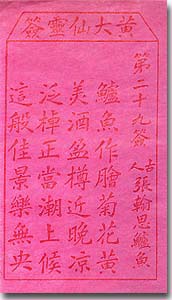 黃大仙靈簽
第二十九簽
古人張翰思鱸魚
鱸魚作膾菊花黃
美酒盈樽近晚涼
泛棹正當潮上候
這般佳景樂無央